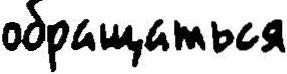 обращаться